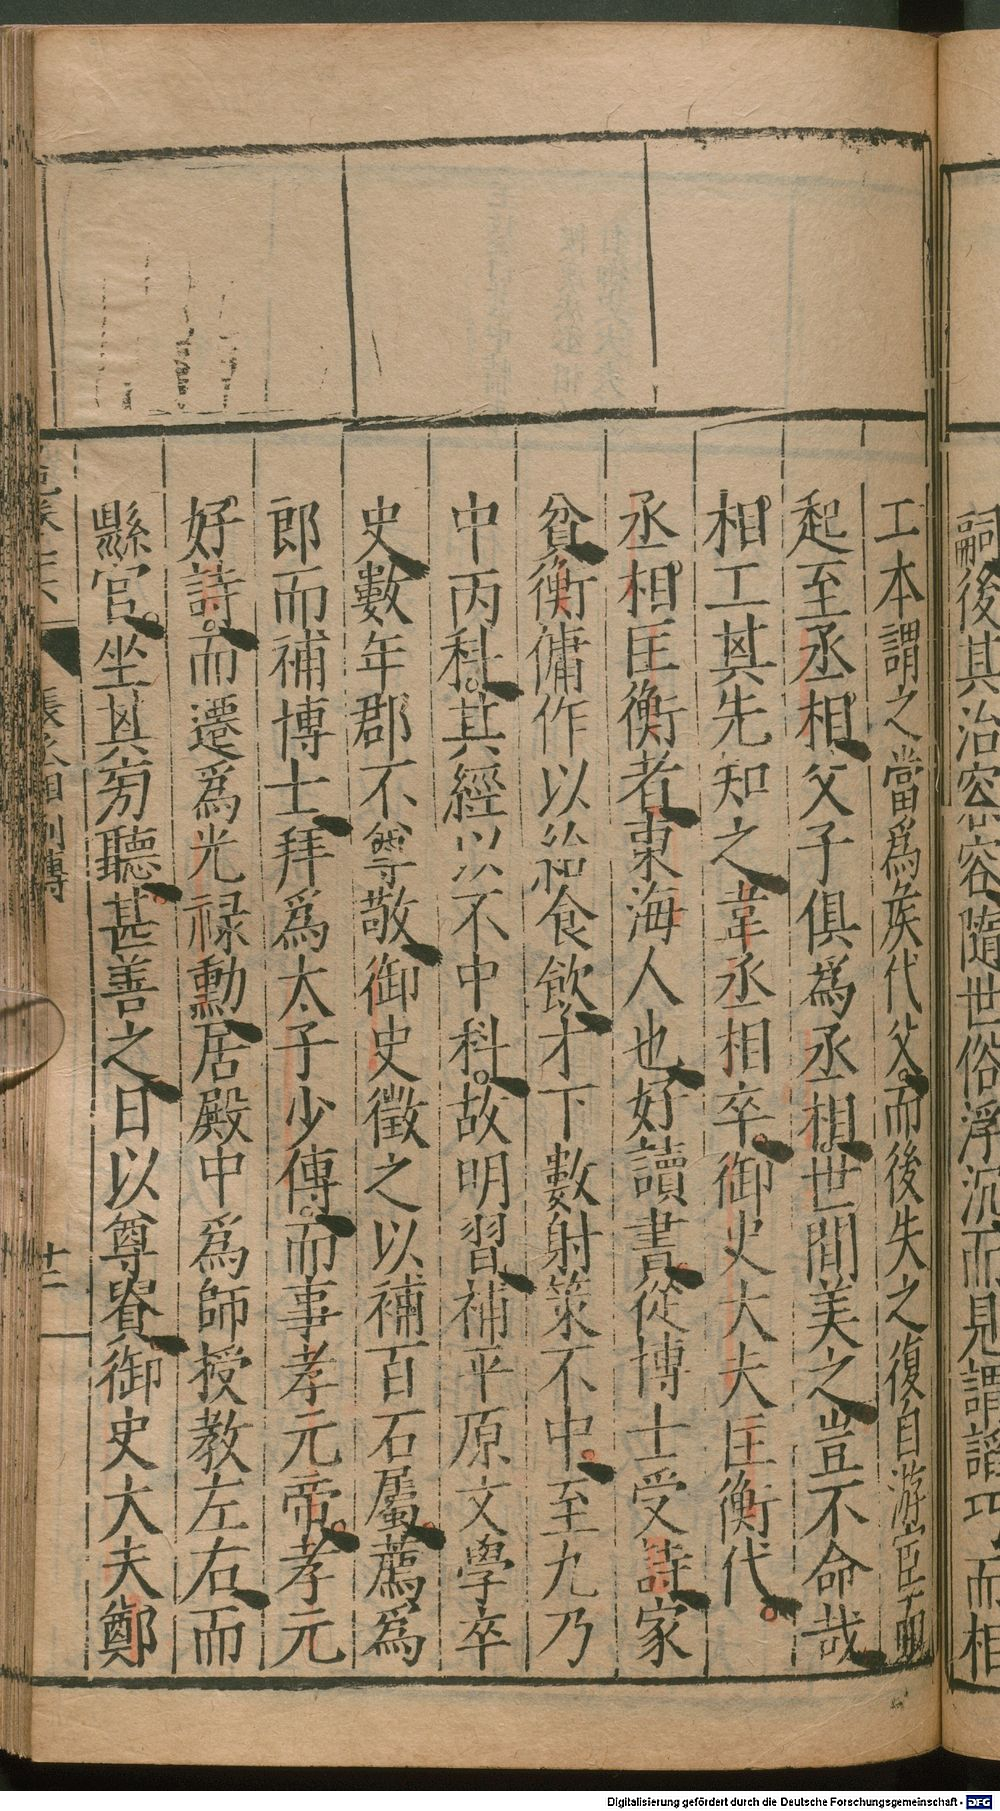 嗣後其治容容隨世俗浮沉而見謂謟巧而相
工本謂之當爲矦代父而後失之復自游宦而
起至丞相父子俱爲丞相世間美之豈不命哉
相工其先知之韋丞相卒御史大夫匡衡代
丞相匡衡者東海人也好讀書從博士受詩家
貧衡傭作以給食飲才下數射策不中至九乃
中丙科其經以不中科故明習補平原文學卒
史數年郡不尊敬御史徵之以補百石屬薦爲
郎而補博士拜爲太子少傅而事孝元帝孝元
好詩而遷爲光禄勳居殿中爲師授教左右而
縣官坐其旁聽甚善之日以尊貴御史大夫鄭
張丞相列傳
十二
Digitalisierung gefördert durch die Deutsche Forschungsgemeinschaft - DFG